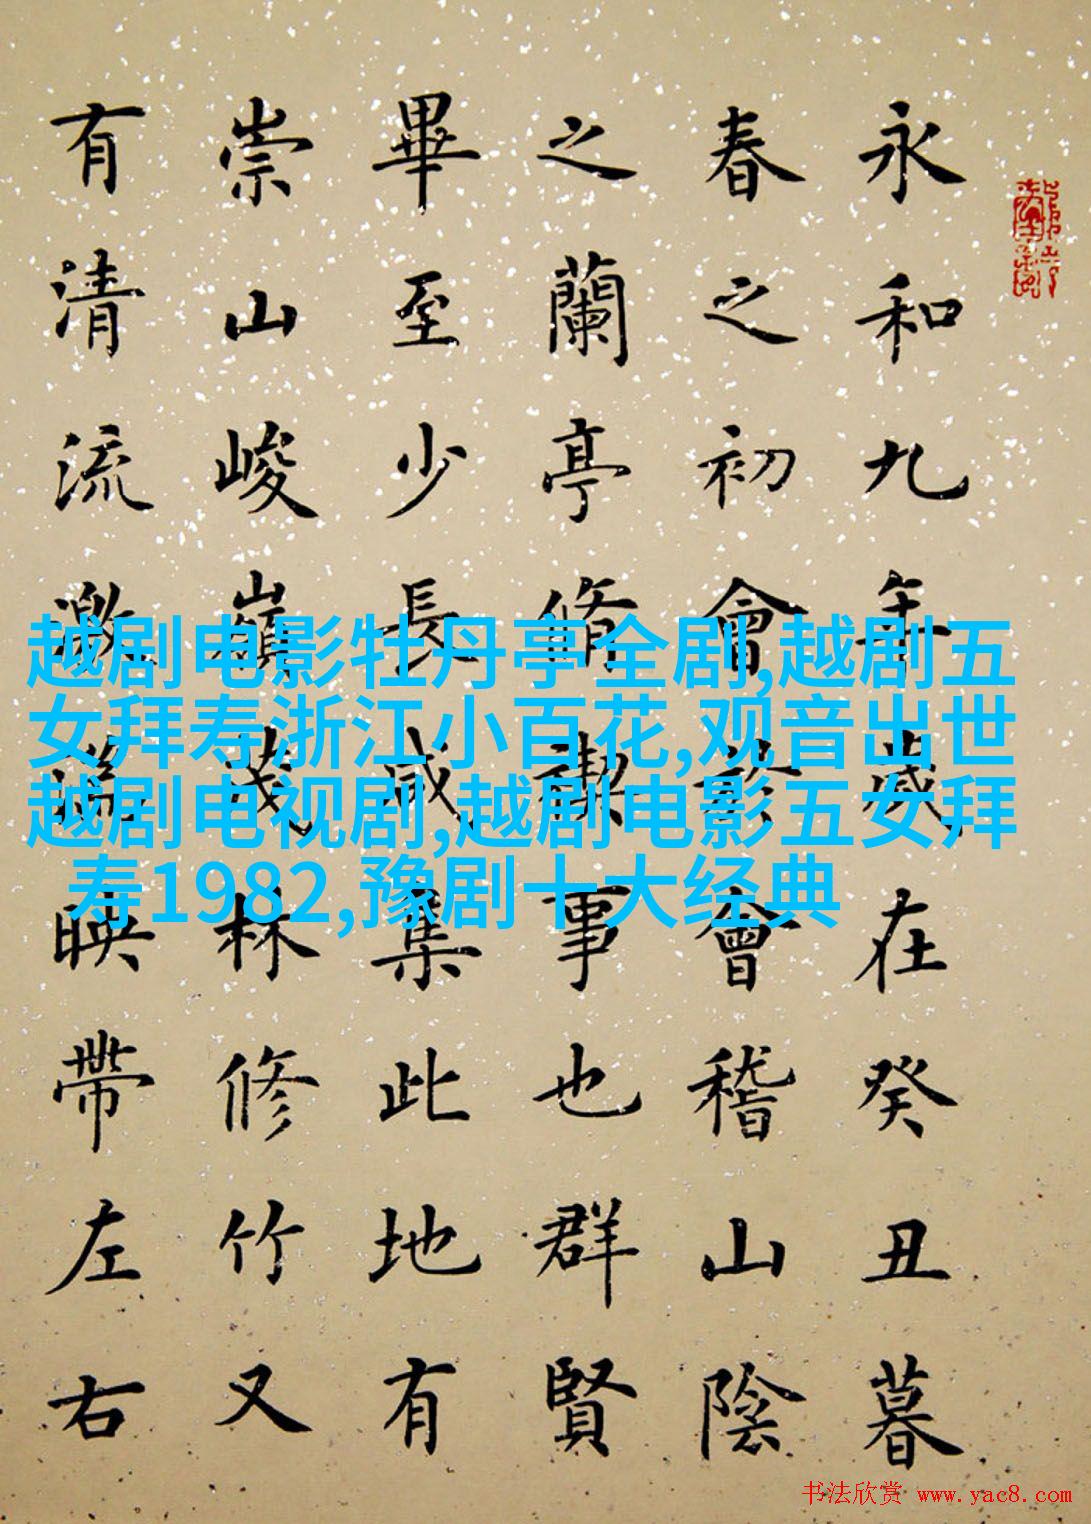 永和九年歲在癸丑暮
春之初會於會稽山陰
之蘭亭脩禊事也群賢
畢至少長咸集此地有
崇山峻嶺茂林修竹又
有清流激湍映帶左右
越剧电影牡丹亭全剧,越剧五
女拜寿浙江小百花,观音出世
越剧电视剧,越剧电影五女拜
寿1982,豫剧十大经典
书法欣赏 www.yac8.com